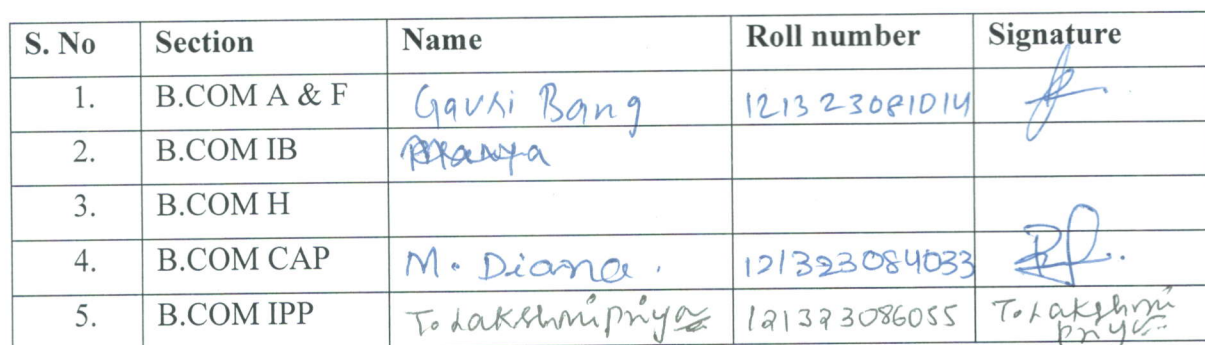 S. No Section Name Roll number Signature
1. B.COM A & F Gauri Bang 121323081014
2. B.COM IB
3. B.COM H
4. B.COM CAP M. Diana. 121323084033
5. B.COM IPP T. Lakshmipriya 121323086055 T. Lakshmi
priya